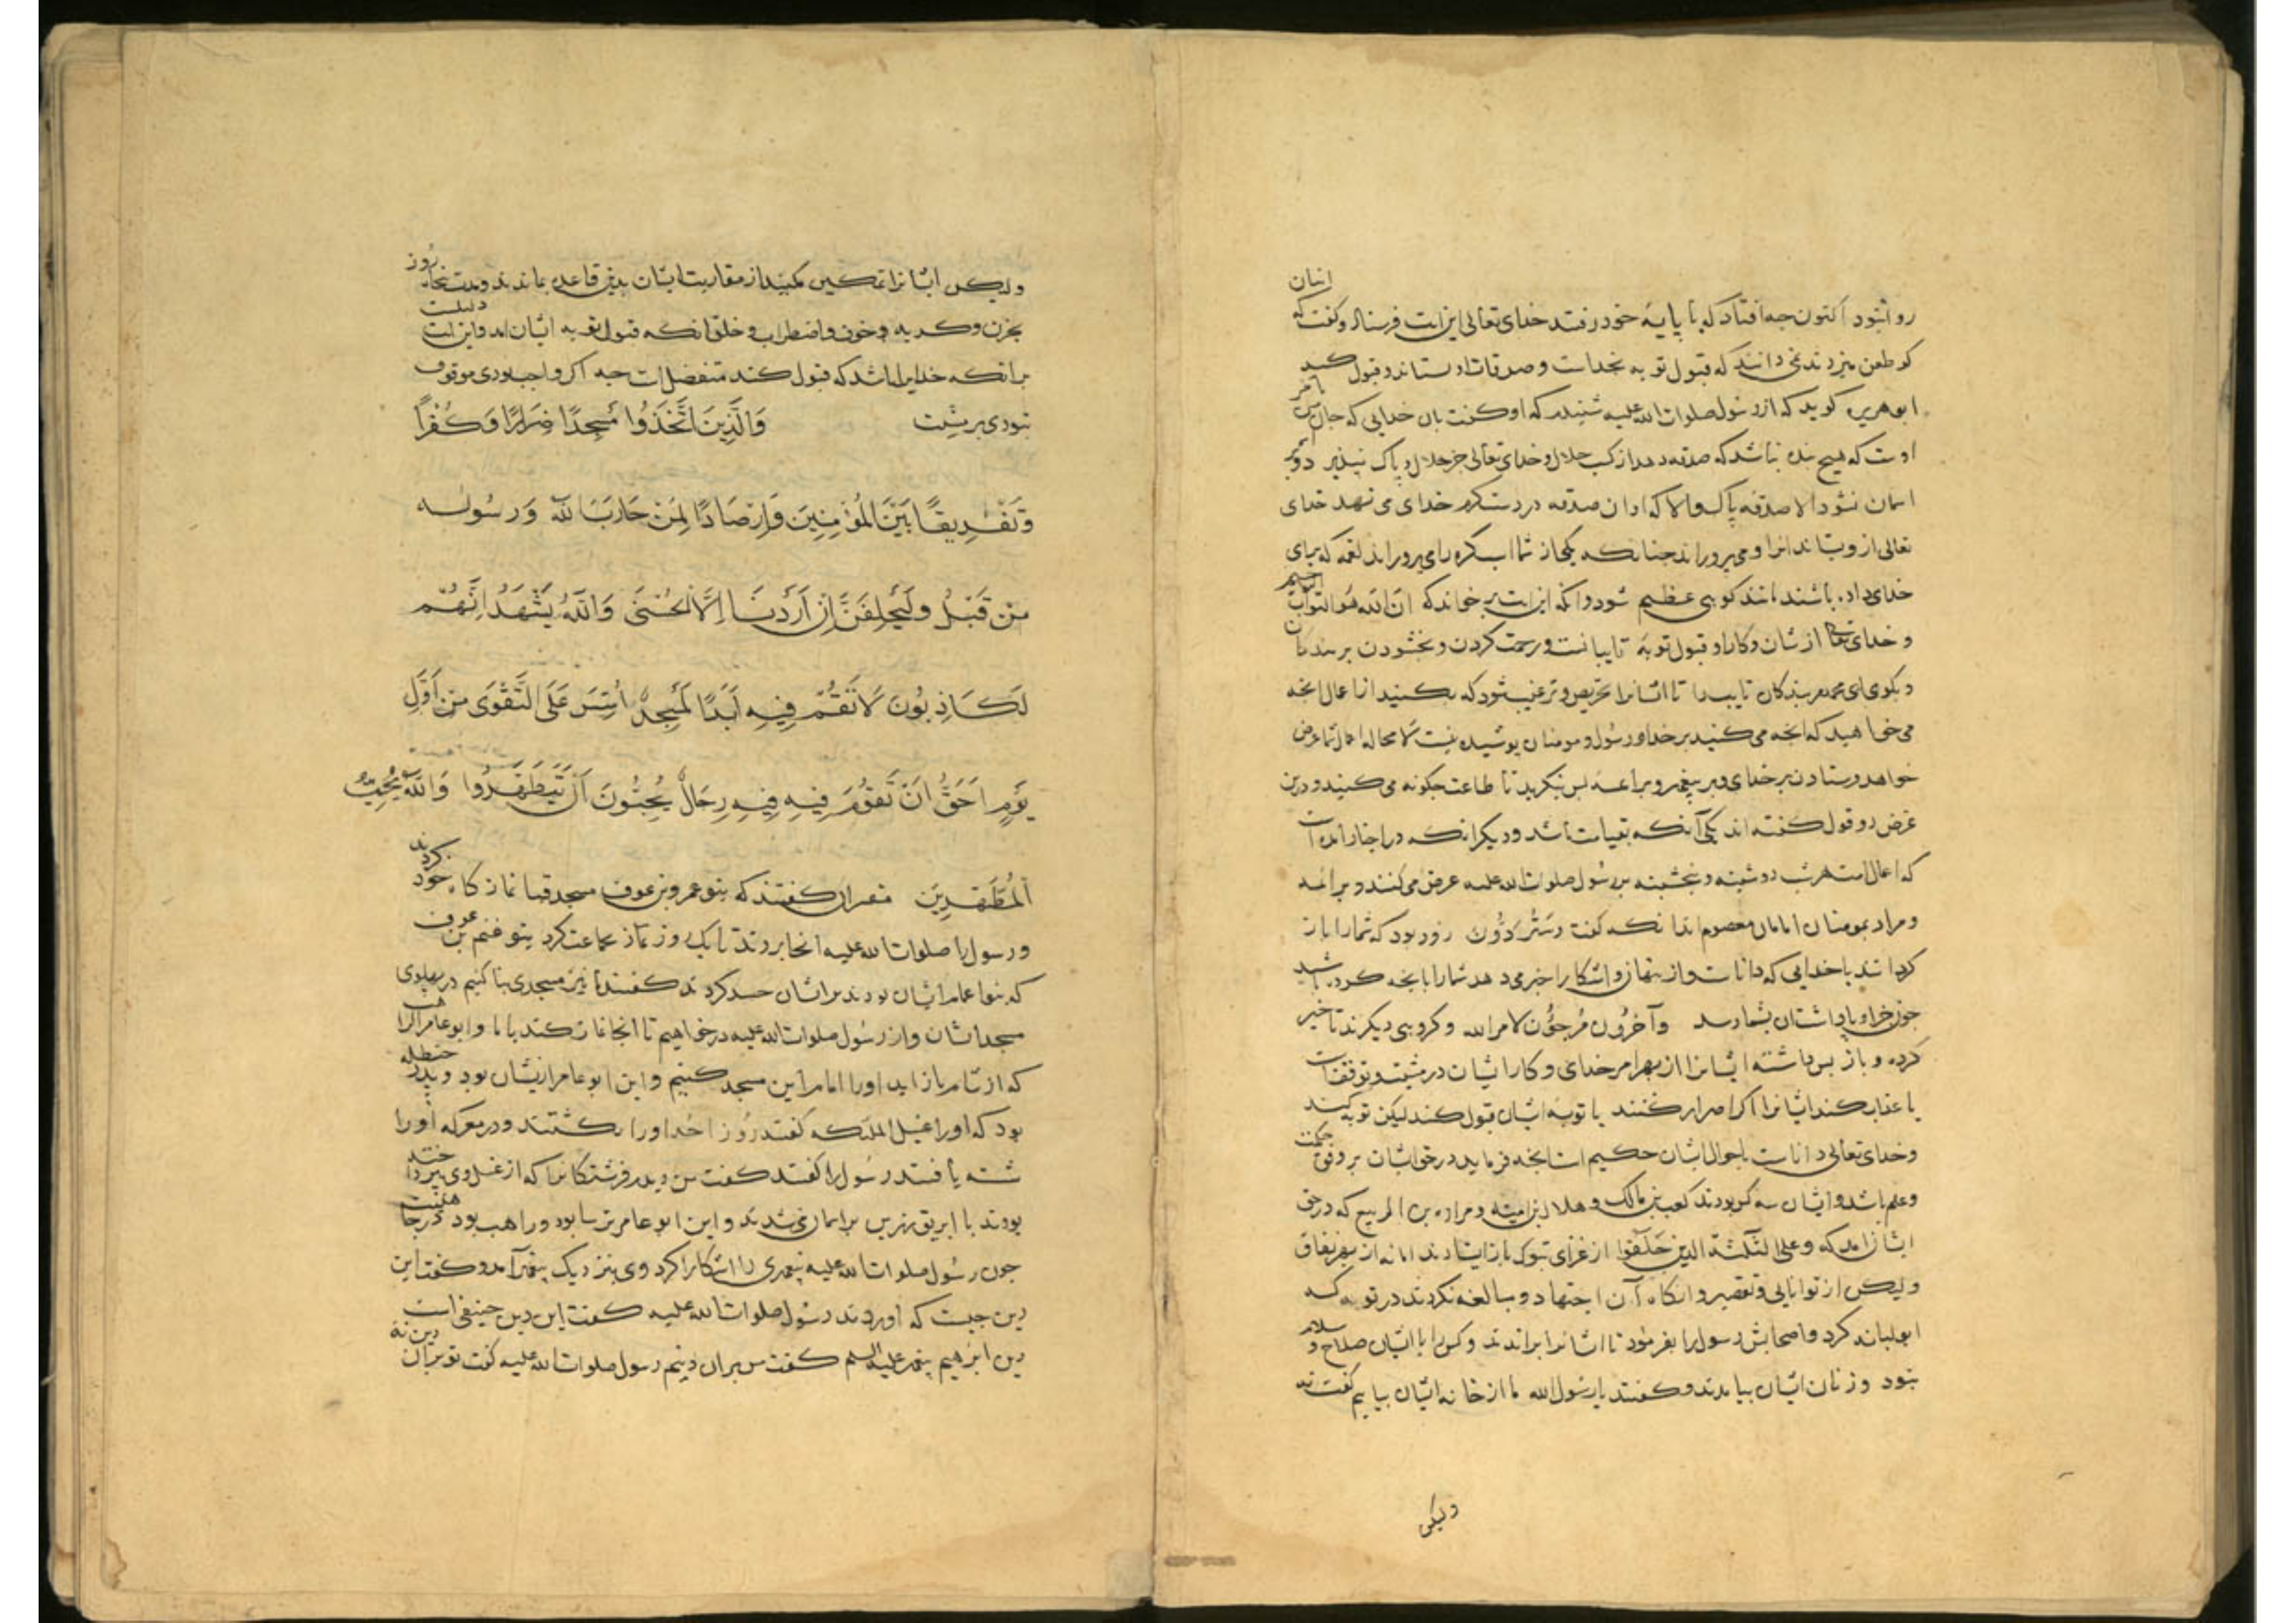 روا نبود اکنون چه افتاد که با پایهٔ خود رفتند خدای تعالی این ایت فرستاد و کفت که ایشان
کو طعن میزدند نمی دانند که قبول توبه بخداست و صدقات او ستاند و قبول کند
ابوهریره کوید که از رسول صلوات الله علیه شنیدم که او کفت بان خدایی که جان من بامر
اوست که هیچ بنده نباشد که صدقه دهد از کسب حلال و خدای تعالی جز حلال و پاک نپذیرد و بر
اسمان نشود الا صدقه پاک والا که او ان صدقه در دست کرم خدای می نهد خدای
تعالی از وی بستاند انرا و می پروراند چنانکه یکی از شما اسب کره را می پروراند لقمه که برای
خدای داده باشند مانند کوهی عظیم شود وانکه این ایت بر خواند که ان الله هو التواب الرحیم
و خدای تعالی از شان و کار او قبول توبهٔ تایبانست و رحمت کردن و بخشودن بر بندکان
و بکوی ای محمد مر بندکان تایب را تا ایشانرا تحریص و ترغیب شود که بکنید از اعمال انچه
می خواهید که انچه می کنید بر خدا و رسول و مومنان پوشیده نیست لا محاله اعمال شما عرض
خواهد فرستادن بر خدای و بر پیغمبر و بر ائمه پس بنکرید تا طاعت چکونه می کنید و درین
عرض دو قول کفته اند یکی آنکه بقیامت باشد و دیکر انکه در اخبار امده است
که اعمال امت هر شب دوشنبه و پنجشنبه بر رسول صلوات الله علیه عرض می کنند و بر ائمه
و مراد بمومنان امامان معصوم اند انکه کفت وستردون زود بود که شما را باز
کردانند با خدایی که داناست و از پنهان و اشکارا خبر می دهد شما را بانچه کرده باشید
چون جزا و پاداشتان بشما رسد وآخرون مرجون لامر الله و کروهی دیکرند تاخیر
کرده و باز پس داشته ایشانرا از بهر امر خدای و کار ایشان در مشیت و توقفست
یا عذاب کند ایشانرا اکر اصرار کنند یا توبهٔ ایشان قبول کند لیکن توبه کنند
و خدای تعالی داناست باحوال ایشان حکیم است انچه فرماید در حق ایشان بر وفق حکمت
و علم باشد و ایشان سه کس بودند کعب بن مالک و هلال بن امیه و مراره بن الربیع که در حق
ایشان امد که وعلی الثلثه الذین خلفوا از غزای تبوک باز ایستادند اما نه از بهر نفاق
ولیکن از توانایی و تقصیر و انکاه آن اجتهاد و مبالغه نکردند در توبه که
ابولبابه کرد و اصحابش رسول را بفرمود تا ایشانرا براندند و کس را با ایشان صلاح و سلام
نبود و زنان ایشان بیامدند و کفتند یا رسول الله ما از خانه ایشان بیاییم کفت نه
ولیکن
ولیکن ایشانرا تمکین مکنید از مقاربت ایشان بدین قاعده بماندند و مدت پنجاه روز
بحزن و کریه و خوف و اضطراب و خلق انکه قبول توبه ایشان امد و این ایت دلیلست
برانکه خدایرا باشد که قبول کند متفضل است چه اکر واجب بودی موقوف
نبودی بر مشیت وَالَّذِينَ اتَّخَذُوا مَسْجِدًا ضِرَارًا وَكُفْرًا
وَتَفْرِيقًا بَيْنَ الْمُؤْمِنِينَ وَإِرْصَادًا لِمَنْ حَارَبَ اللَّهَ وَرَسُولَه
مِنْ قَبْلُ وَلَيَحْلِفَنَّ إِنْ أَرَدْنَا إِلَّا الْحُسْنَى وَاللَّهُ يَشْهَدُ إِنَّهُمْ
لَكَاذِبُونَ لَا تَقُمْ فِيهِ أَبَدًا لَمَسْجِدٌ أُسِّسَ عَلَى التَّقْوَى مِنْ أَوَّلِ
يَوْمٍ أَحَقُّ أَنْ تَقُومَ فِيهِ فِيهِ رِجَالٌ يُحِبُّونَ أَنْ يَتَطَهَّرُوا وَاللَّهُ يُحِبُّ
الْمُطَّهِّرِينَ مفسران کفتند که بنو عمرو بن عوف مسجد قبا نماز کاه خود کردند
و رسول را صلوات الله علیه انجا بردند تا یک روز نماز جماعت کرد بنو غنم بن عوف
که بنو اعمام ایشان بودند بر ایشان حسد کردند کفتند ما نیز مسجدی بنا کنیم در پهلوی
مسجد ایشان و از رسول صلوات الله علیه درخواهیم تا انجا نماز کند با ما و ابوعامر الراهب
که از شام باز اید او را امام این مسجد کنیم و این ابوعامر از ایشان بود و پدر حنظله
بود که او را غسیل الملئکه کفتند روز احد او را بکشتند و در معرکه او را
شسته یافتند رسول را کفتند کفت من دیدم فرشتکانرا که از غسل وی می پرداختند
بودند با ابریق زرین بر اسمان می شدند و این ابوعامر ترسا بود و راهب بود در جاهلیت
چون رسول صلوات الله علیه پیغمبری را اشکارا کرد وی بنزدیک پیغمبر آمد و کفت این
دین چیست که اوردند رسول صلوات الله علیه کفت این دین حنیفی است
دین ابرهیم پیغمبر علیه السلم کفت من بران دینم رسول صلوات الله علیه کفت تو بر آن دین نهٔ